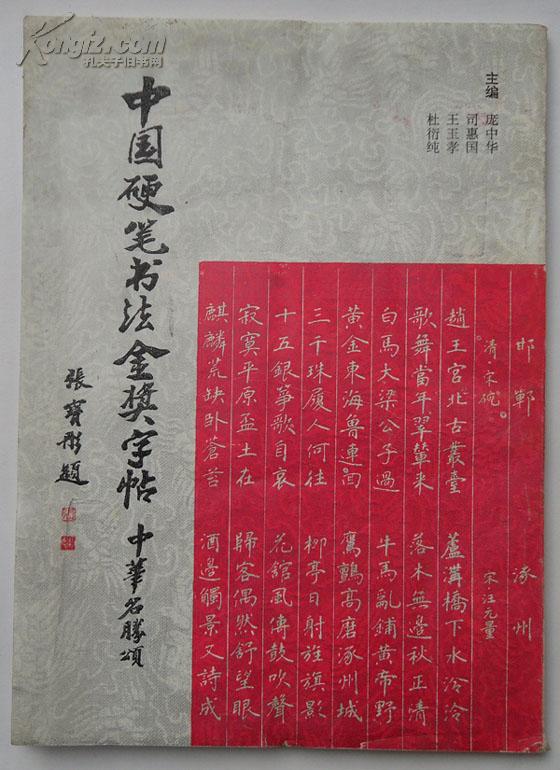 Kongfz.com
孔夫子旧书网
主编
庞中华
司惠国
王玉孝
杜衍纯
中国硬笔书法金奖字帖
中華名勝頌
張寶彤題
邯鄲
清·宋琬。
趙王宮北古叢臺
歌舞當年翠輦来
白馬大梁公子過
黃金東海魯連回
三千珠履人何往
十五銀箏歌自哀
寂寞平原盃土在
麒麟荒缺卧蒼苔
涿州
宋汪元量
蘆溝橋下水泠泠
落木無邊秋正清
牛馬亂鋪黃帝野
鷹鸇高磨涿州城
柳亭日射旌旗影
花館風傳鼓吹聲
歸客偶然舒望眼
酒邊觸景又詩成